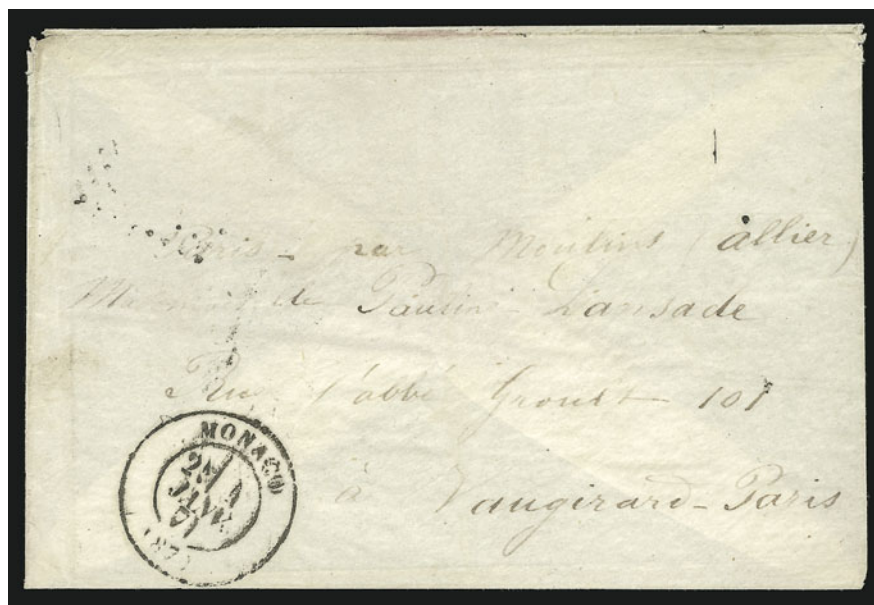 Paris - par Moulins (allier)
de Pauline Lansade
Rue l'abbé Groult 101
à Vaugirard - Paris
MONACO
JANV.